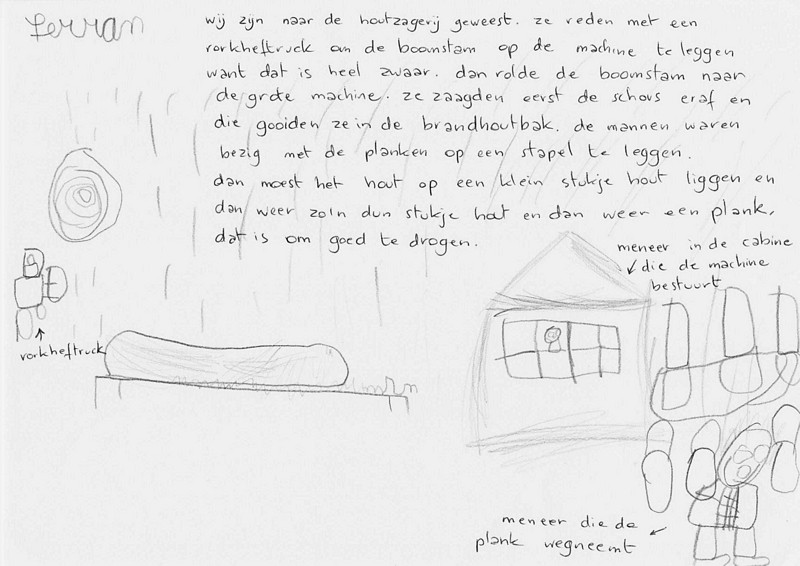 Ferran
wij zijn naar de houtzagerij geweest. ze reden met een
vorkheftruck om de boomstam op de machine te leggen
want dat is heel zwaar. dan rolde de boomstam naar
de grote machine. ze zaagden eerst de schors eraf en
die gooiden ze in de brandhoutbak. de mannen waren
bezig met de planken op een stapel te leggen.
dan moest het hout op een klein stukje hout liggen en
dan weer zo'n dun stukje hout en dan weer een plank,
dat is om goed te drogen.
meneer in de cabine
die de machine
bestuurt
vorkheftruck
meneer die de
plank wegneemt